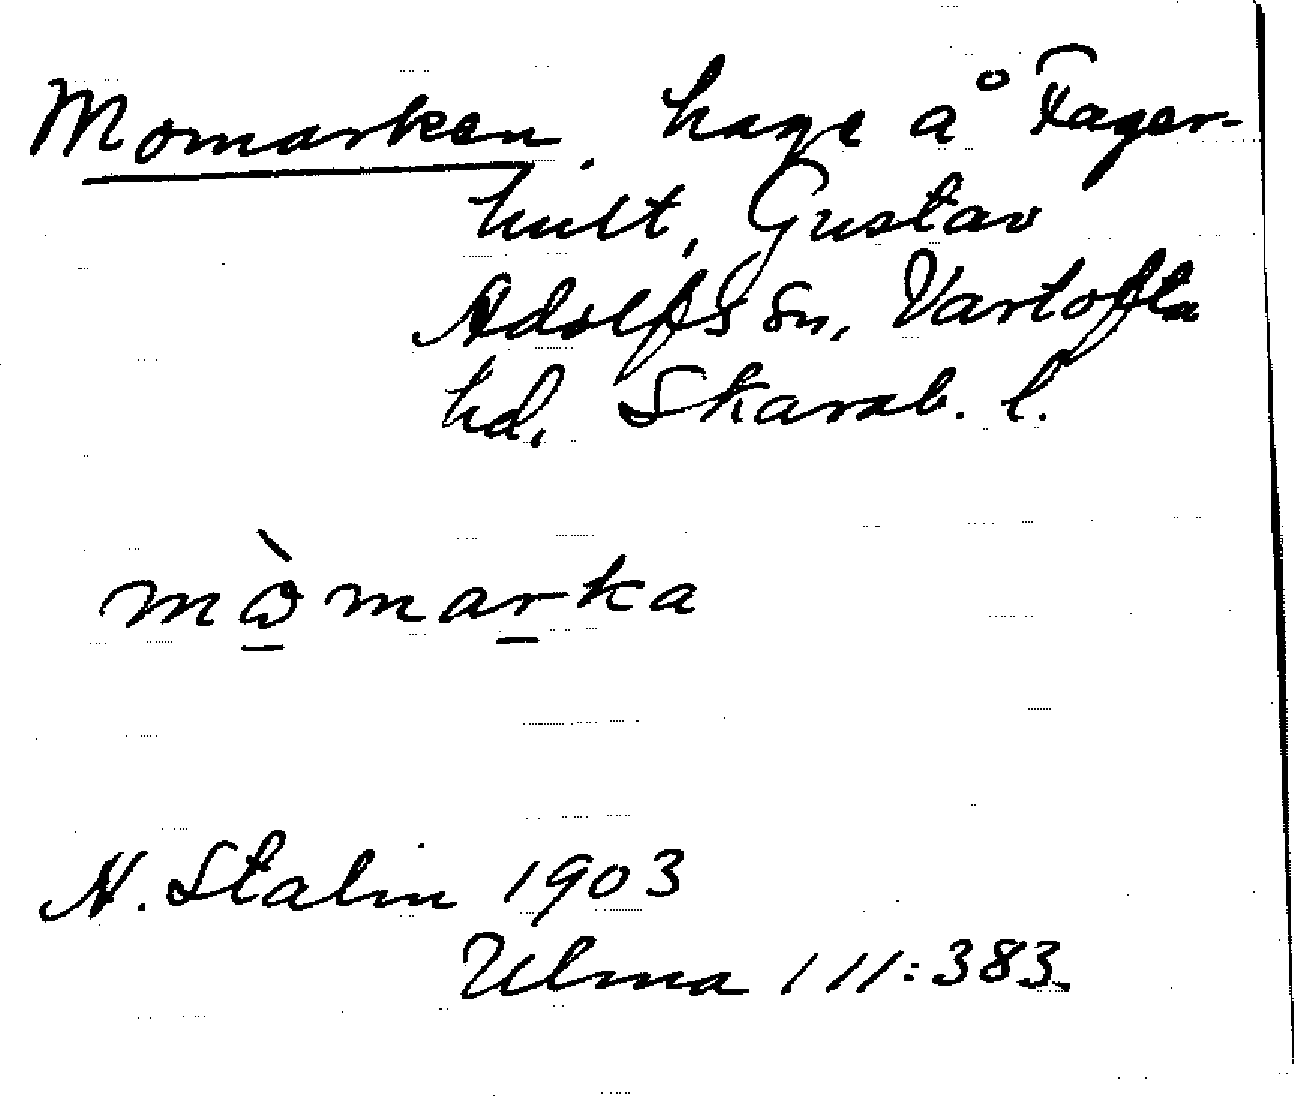 Momarken. hage å Fager-
hult, Gustav
Adolfs sn, Vartofta
hd, Skarab. l.
mὼmarka
H. Stalin 1903
Ulma 111:383.